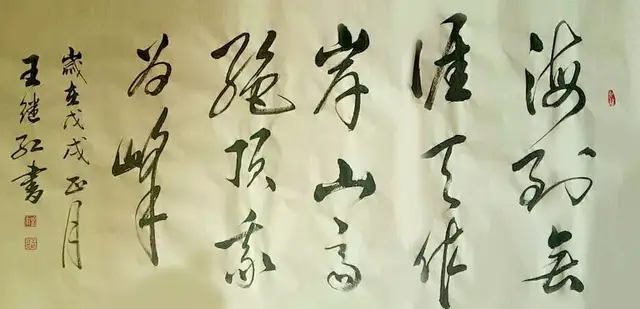 海到无
涯天作
岸山高
绝顶我
为峰
岁在戊戌正月
王继红书